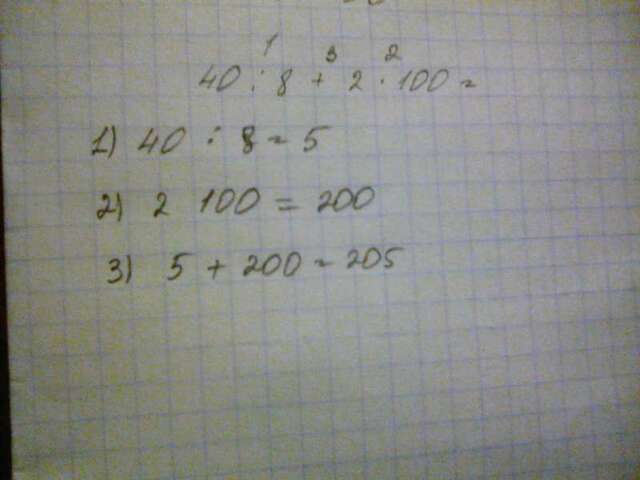 1 3 2
40 : 8 + 2 · 100 =
1) 40 : 8 = 5
2) 2 100 = 200
3) 5 + 200 = 205